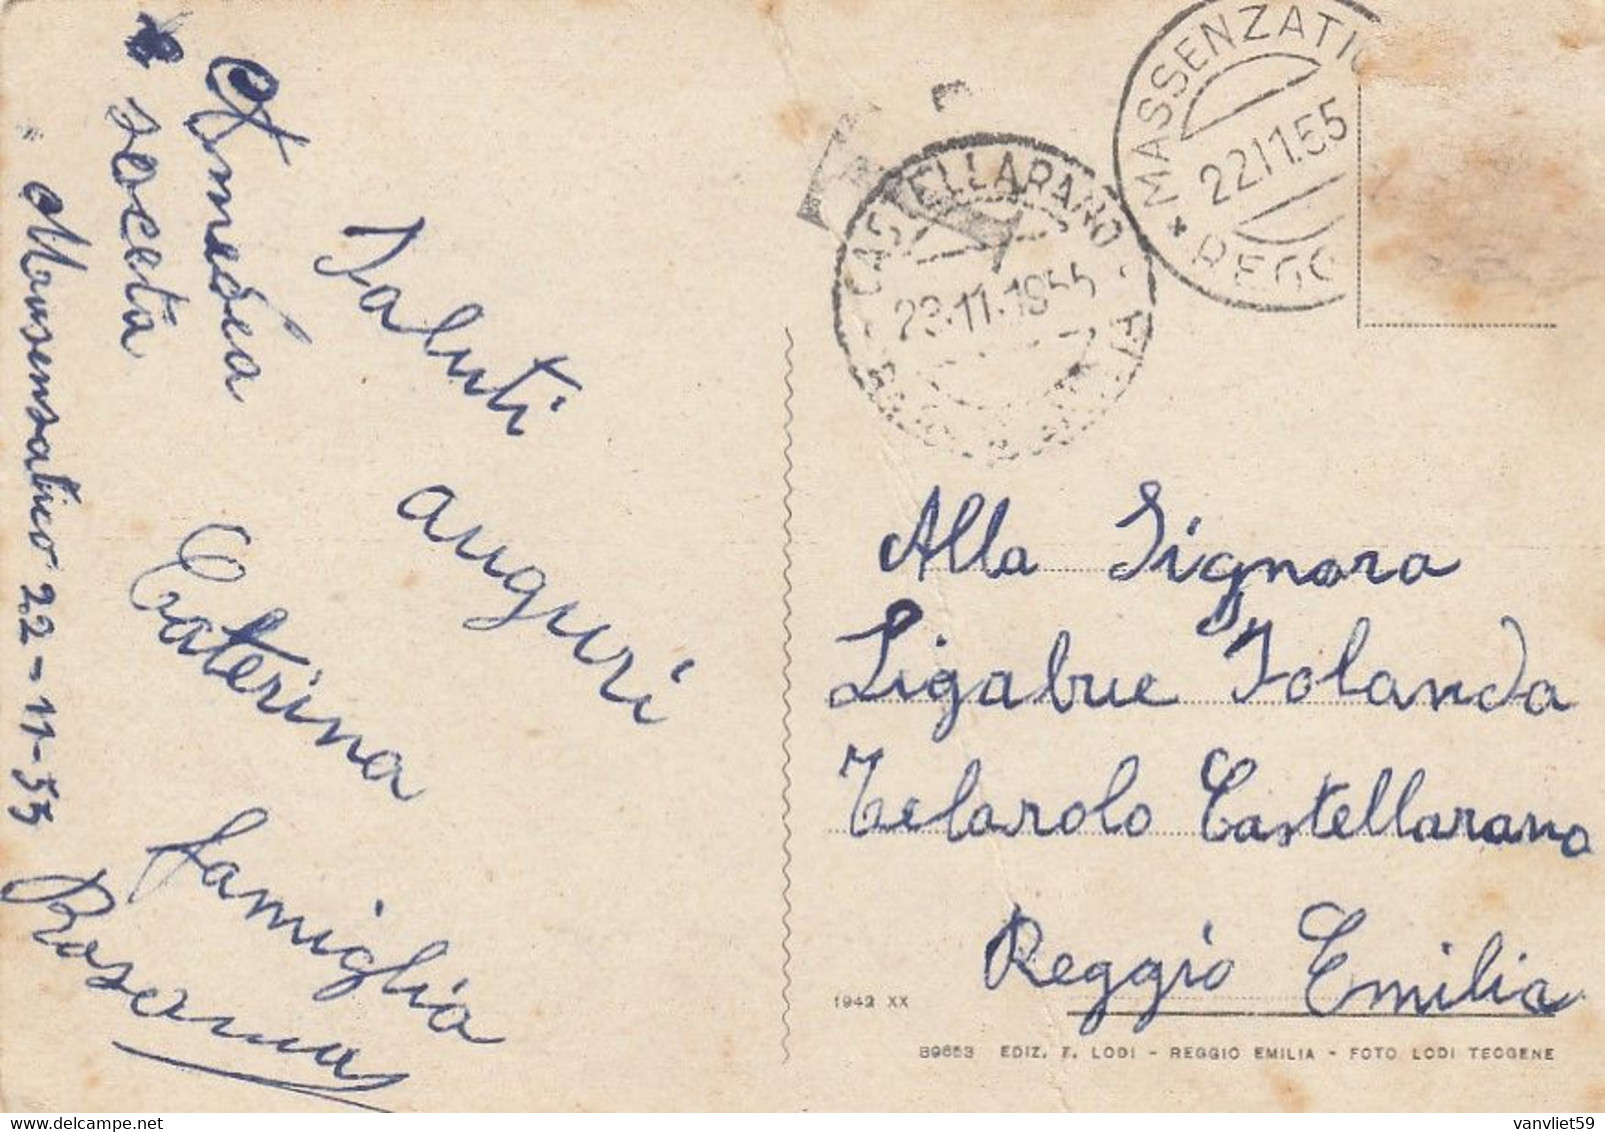 Massensatico 22-11-55
Amedea
e soceta
Saluti
auguri
Caterina
famiglia
Rosanna
MASSENZATIC
22.11.55
* REGG
CASTELLARANO
23.11.1955
Alla Signora
Ligabue Iolanda
Telarolo Castellarano
Reggio Emilia
1942 XX
B9653 EDIZ. F. LODI - REGGIO EMILIA - FOTO LODI TEOGENE
www.delcampe.net
vanvliet59